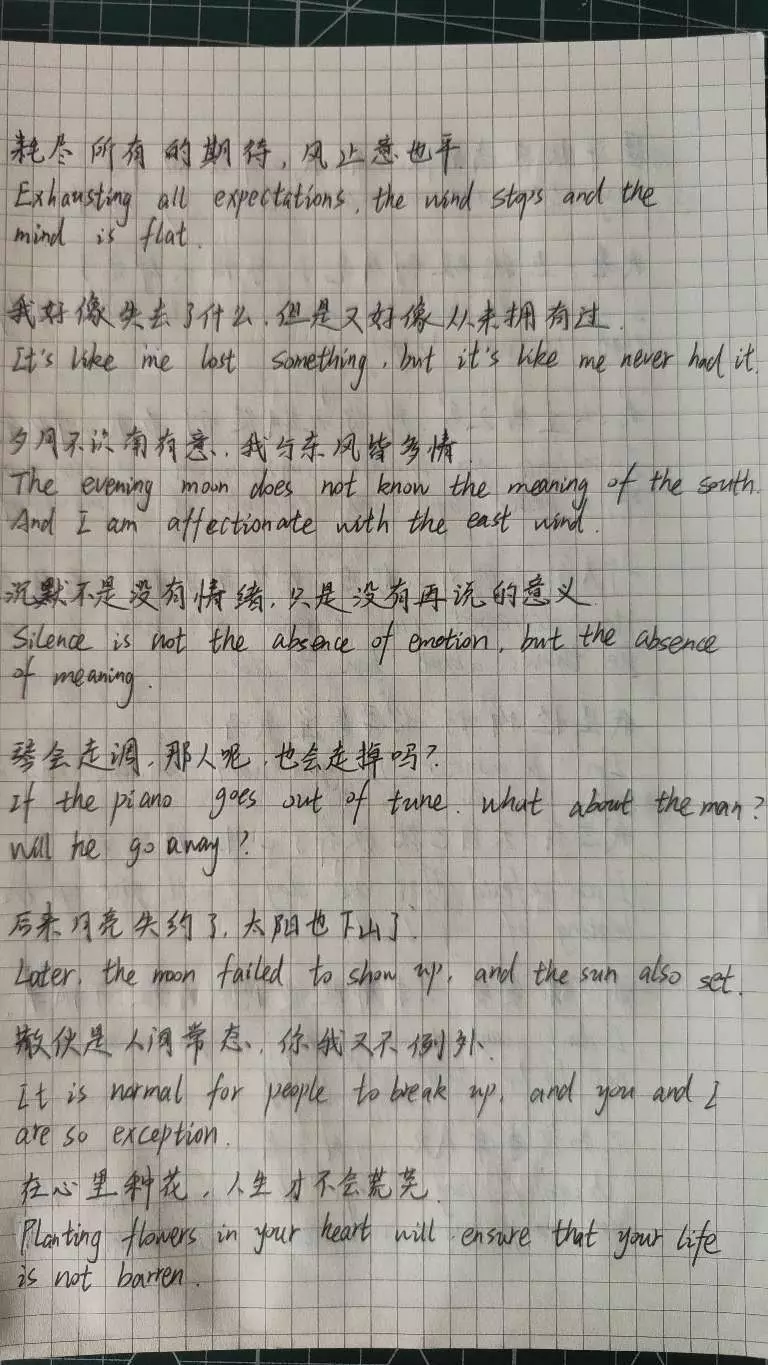 耗尽所有的期待，风止意也平
Exhausting all expectations, the wind stops and the
mind is flat.
我好像失去了什么，但是又好像从来拥有过.
It's like me lost something, but it's like me never had it.
夕月不识南有意，我与东风皆多情.
The evening moon does not know the meaning of the south.
And I am affectionate with the east wind.
沉默不是没有情绪，只是没有再说的意义.
Silence is not the absence of emotion, but the absence
of meaning.
琴会走调，那人呢，也会走掉吗？
If the piano goes out of tune. what about the man?
will he go away?
后来月亮失约了，太阳也下山了.
Later, the moon failed to show up, and the sun also set.
散伙是人间常态，你我又不例外.
It is normal for people to break up, and you and I
are so exception.
在心里种花，人生才不会荒芜.
Planting flowers in your heart will ensure that your life
is not barren.